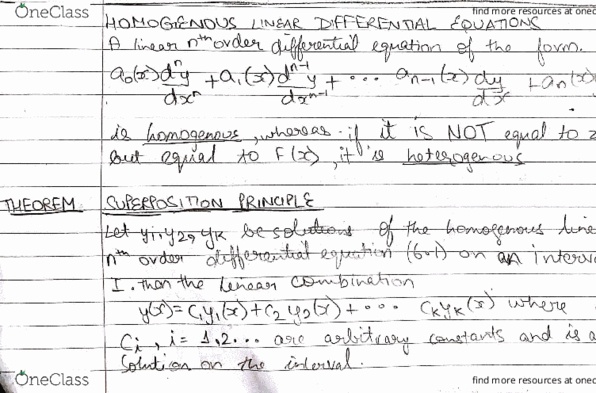 OneClass
find more resources at onec
HOMOGENOUS LINEAR DIFFERENTIAL EQUATIONS
A linear nth order differential equation of the form.
a₀(x) dⁿy/dxⁿ + a₁(x) dⁿ⁻¹y/dxⁿ⁻¹ + ... aₙ₋₁(x) dy/dx + aₙ(x)
is homogenous, whereas if it IS NOT equal to z
but equal to F(x), it is heterogenous
THEOREM SUPERPOSITION PRINCIPLE
Let y₁, y₂, yₖ be solutions of the homogenous line
nth order differential equation (6.1) on an interva
I. then the linear combination
y(x) = C₁y₁(x) + C₂y₂(x) + ... Cₖyₖ(x) where
Cᵢ, i = 1,2... are arbitrary constants and is a
solution on the interval.
OneClass
find more resources at onec